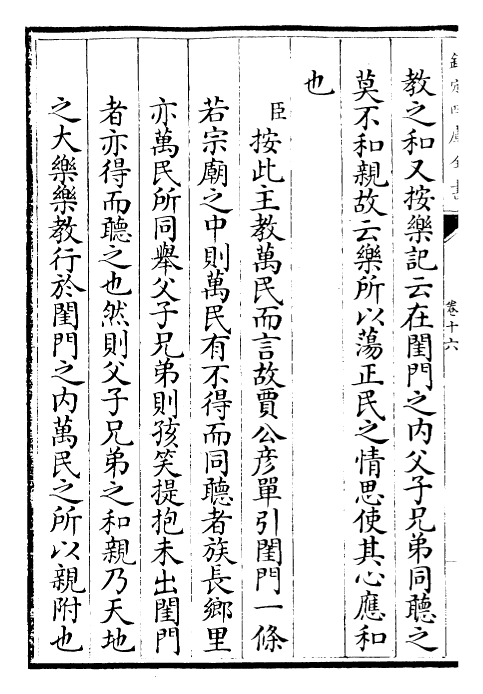 欽定四庫全書
卷十六
教之和又按樂記云在閨門之内父子兄弟同聽之
莫不和親故云樂所以蕩正民之情思使其心應和
也
臣按此主教萬民而言故賈公彦單引閨門一條
若宗廟之中則萬民有不得而同聽者族長鄉里
亦萬民所同舉父子兄弟則孩笑提抱未出閨門
者亦得而聽之也然則父子兄弟之和親乃天地
之大樂樂教行於閨門之内萬民之所以親附也